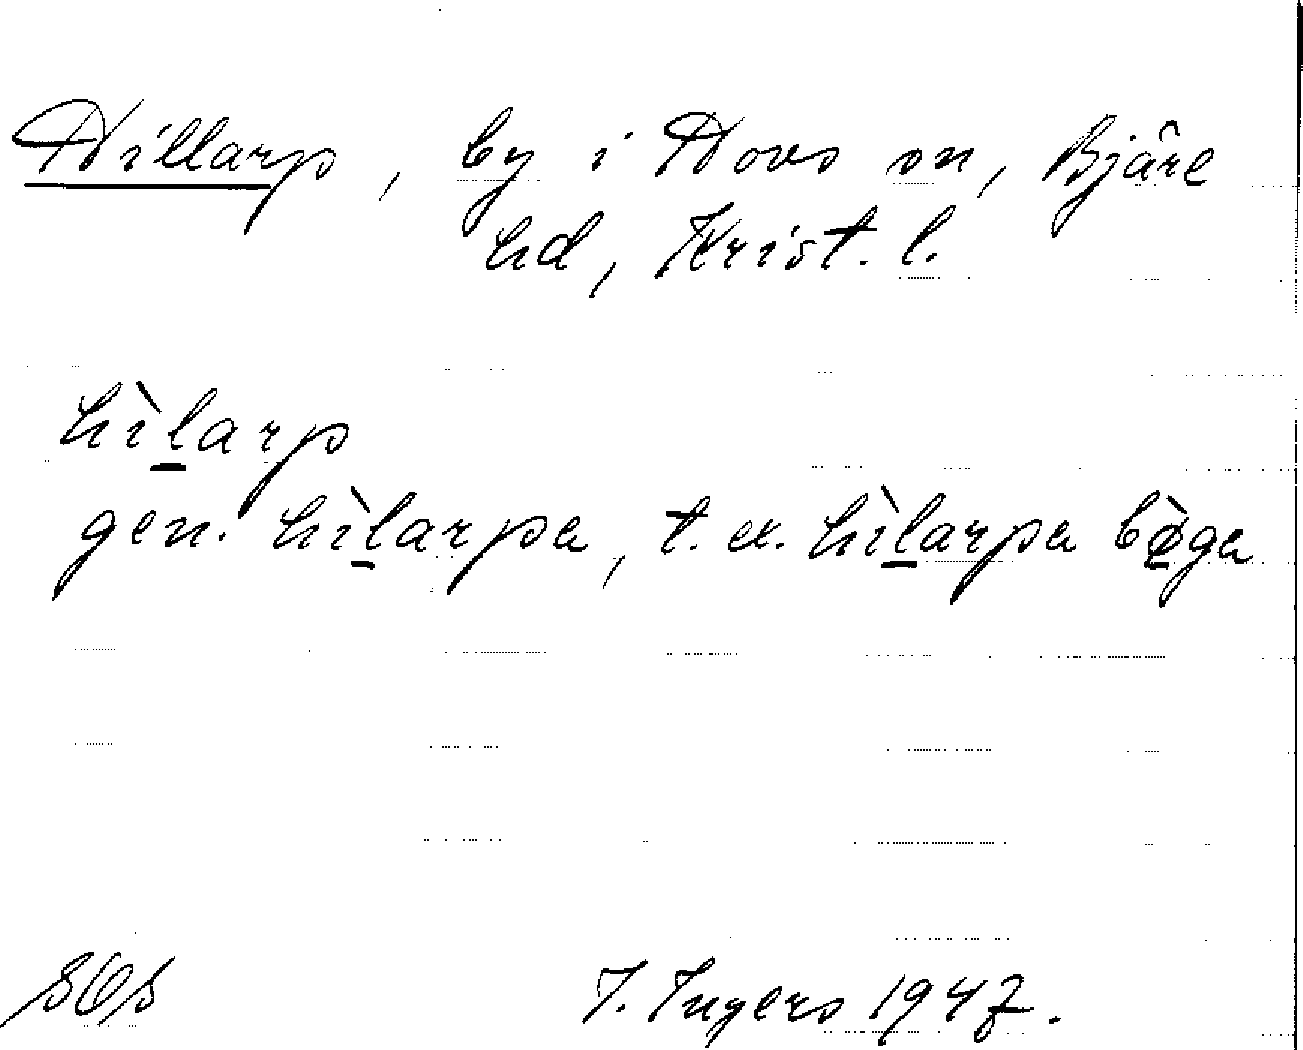 Hillarp, by i Hovs sn, Bjäre
hd, Krist. l.
hìl̲arp
gen. hìl̲arpa, t. ex. hìl̲arpa bø̲̀ga
SOS
I. Ingers 1947.